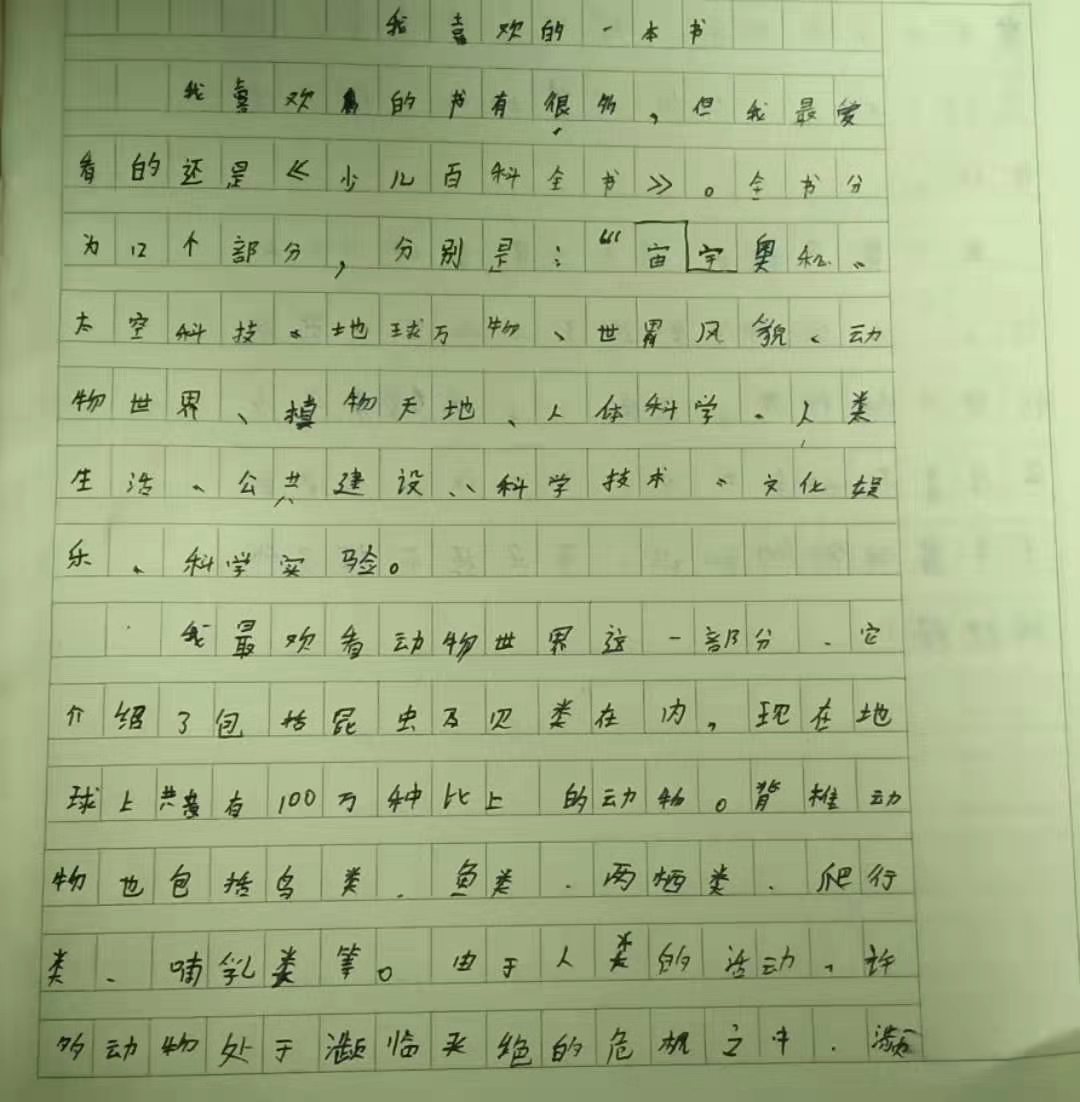 我喜欢的一本书
我喜欢的书有很多，但我最爱
看的还是《少儿百科全书》。全书分
为12个部分，分别是：“宙宇奥秘、
太空科技、地球万物、世界风貌、动
物世界、植物天地、人体科学、人类
生活、公共建设、科学技术、文化娱
乐、科学实验。
我最欢看动物世界这一部分．它
介绍了包括昆虫及贝类在内，现在地
球上共有100万种比上的动物。脊椎动
物也包括鸟类．鱼类．两栖类．爬行
类、哺乳类等。由于人类的活动，许
多动物处于濒临灭绝的危机之中．濒